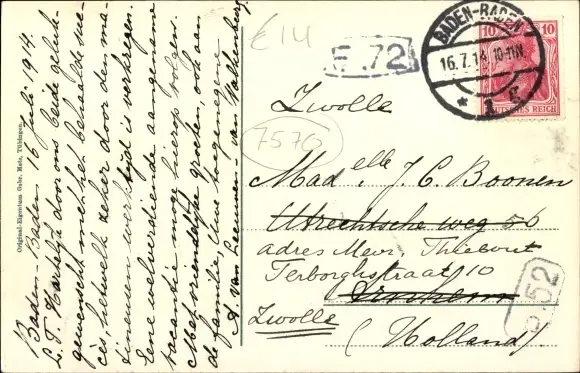 Baden-Baden 16 Juli 1914.
L. T. Hartelijk door ons beide geluk-
gewenscht met het behaalde suc-
cès, hetwelk zeker door den me-
dinen werktijd is verkregen.
Eene welverdiende aangename
vacantie moge hierop volgen.
Met vriendelijke groeten, ook aan
de familie, Uwe toegenegene
A. van Leeuwen-van Valkenburg.
Original-Eigentum Gebr. Metz, Tübingen.
£14
F.72
BADEN-BADEN
16.7.14. 10-11N.
* 1 g
10 10
DEUTSCHES REICH
Zwolle
7576
Mad elle J. C. Boonen
Utrechtsche weg 56
adres Mevr. Thiebout
Terborghstraat 10
Arnhem
Zwolle
(Holland)
52